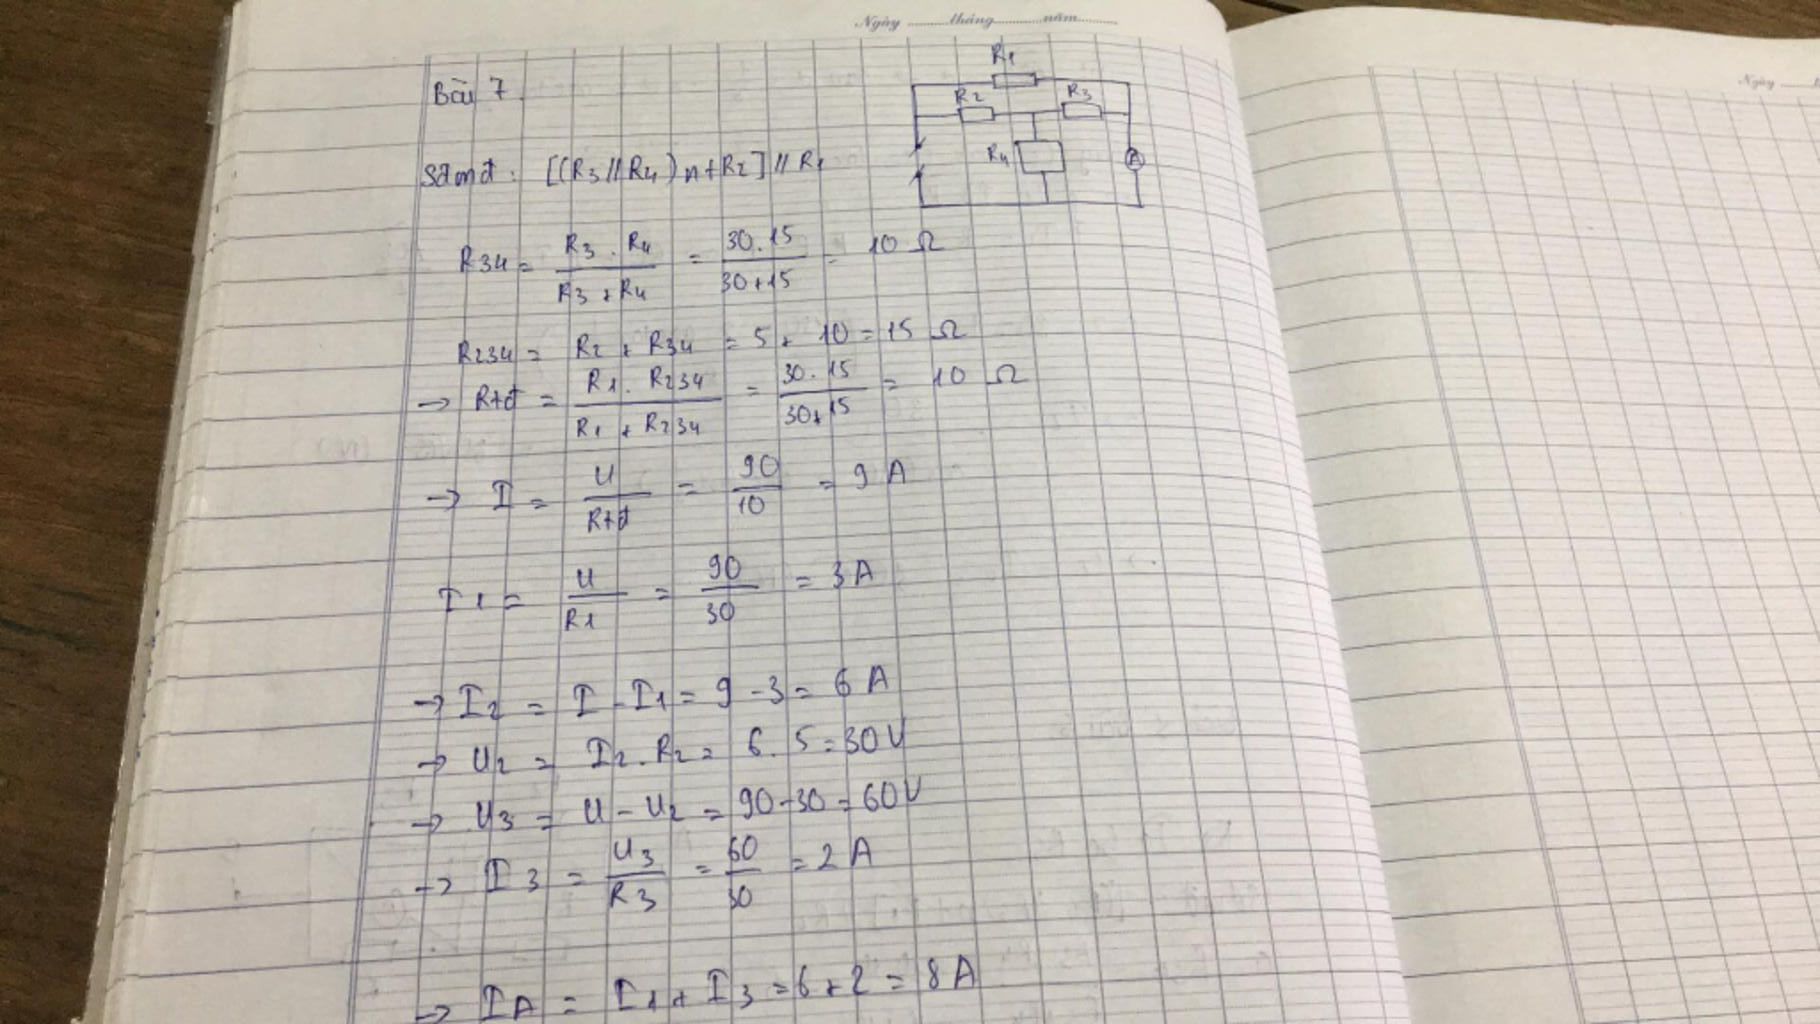 Ngày ..........tháng..........năm..........
Bài 7
R1
R2
R3
R4
A
Sđmđ : [(R3 // R4) nt R2] // R1
R34 = R3 . R4 / R3 + R4 = 30.15 / 30+15 = 10 Ω
R234 = R2 + R34 = 5 + 10 = 15 Ω
→ Rtđ = R1 . R234 / R1 + R234 = 30.15 / 30+15 = 10 Ω
→ I = U / Rtđ = 90 / 10 = 9 A
I1 = U / R1 = 90 / 30 = 3 A
→ I2 = I - I1 = 9 - 3 = 6 A
→ U2 = I2 . R2 = 6 . 5 = 30 V
→ U3 = U - U2 = 90 - 30 = 60 V
→ I3 = U3 / R3 = 60 / 30 = 2 A
→ IA = I1 + I3 = 6 + 2 = 8 A
Ngày